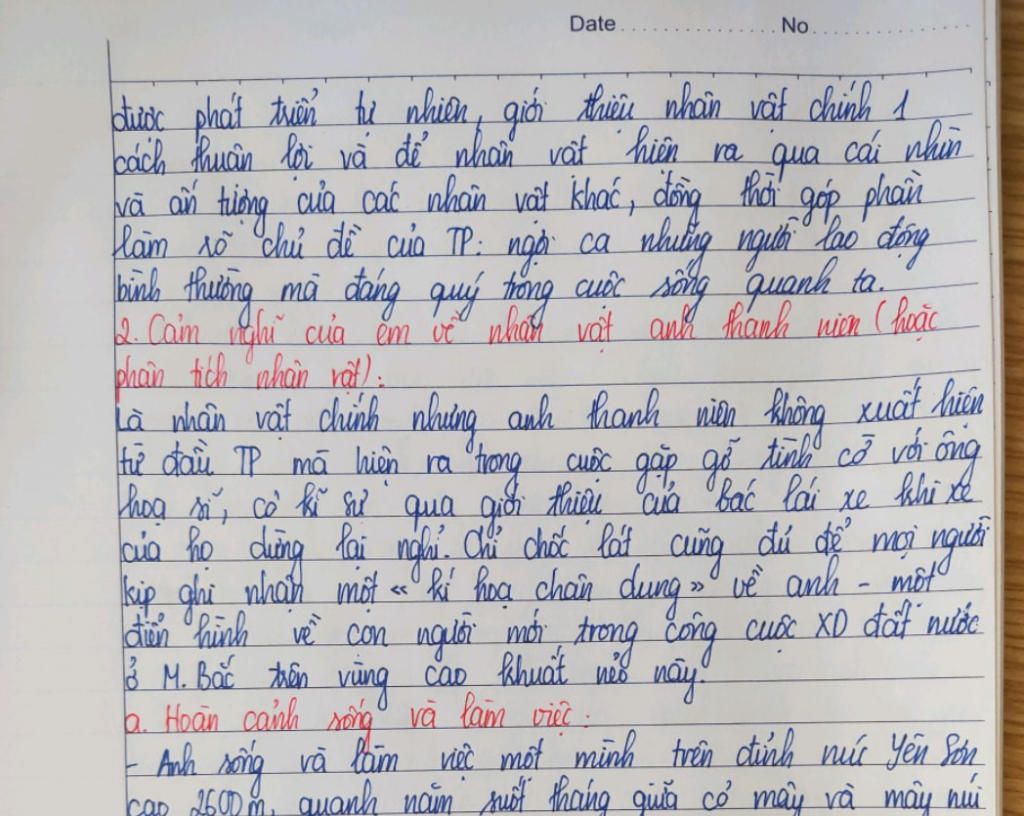 Date................ No................
được phát triển tự nhiên, giới thiệu nhân vật chính 1
cách thuận lợi và để nhân vật hiện ra qua cái nhìn
và ấn tượng của các nhân vật khác, đồng thời góp phần
làm rõ chủ đề của TP: ngợi ca những người lao động
bình thường mà đáng quý trong cuộc sống quanh ta.
2. Cảm nghĩ của em về nhân vật anh thanh niên (hoặc
phân tích nhân vật):
Là nhân vật chính nhưng anh thanh niên không xuất hiện
từ đầu TP mà hiện ra trong cuộc gặp gỡ tình cờ với ông
hoạ sĩ, cô kĩ sư qua giới thiệu của bác lái xe khi xe
của họ dừng lại nghỉ. Chỉ chốc lát cũng đủ để mọi người
kịp ghi nhận một « kí hoạ chân dung » về anh - một
điển hình về con người mới trong công cuộc XD đất nước
ở M. Bắc trên vùng cao khuất nẻo này.
a. Hoàn cảnh sống và làm việc:
- Anh sống và làm việc một mình trên đỉnh núi Yên Sơn
cao 2600m, quanh năm suốt tháng giữa cỏ mây và mây núi